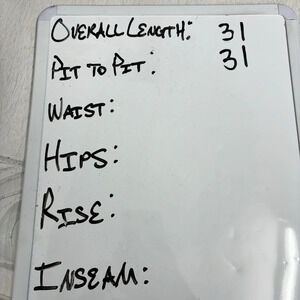 OVERALL LENGTH: 31
PIT TO PIT: 31
WAIST:
HIPS:
RISE:
INSEAM: